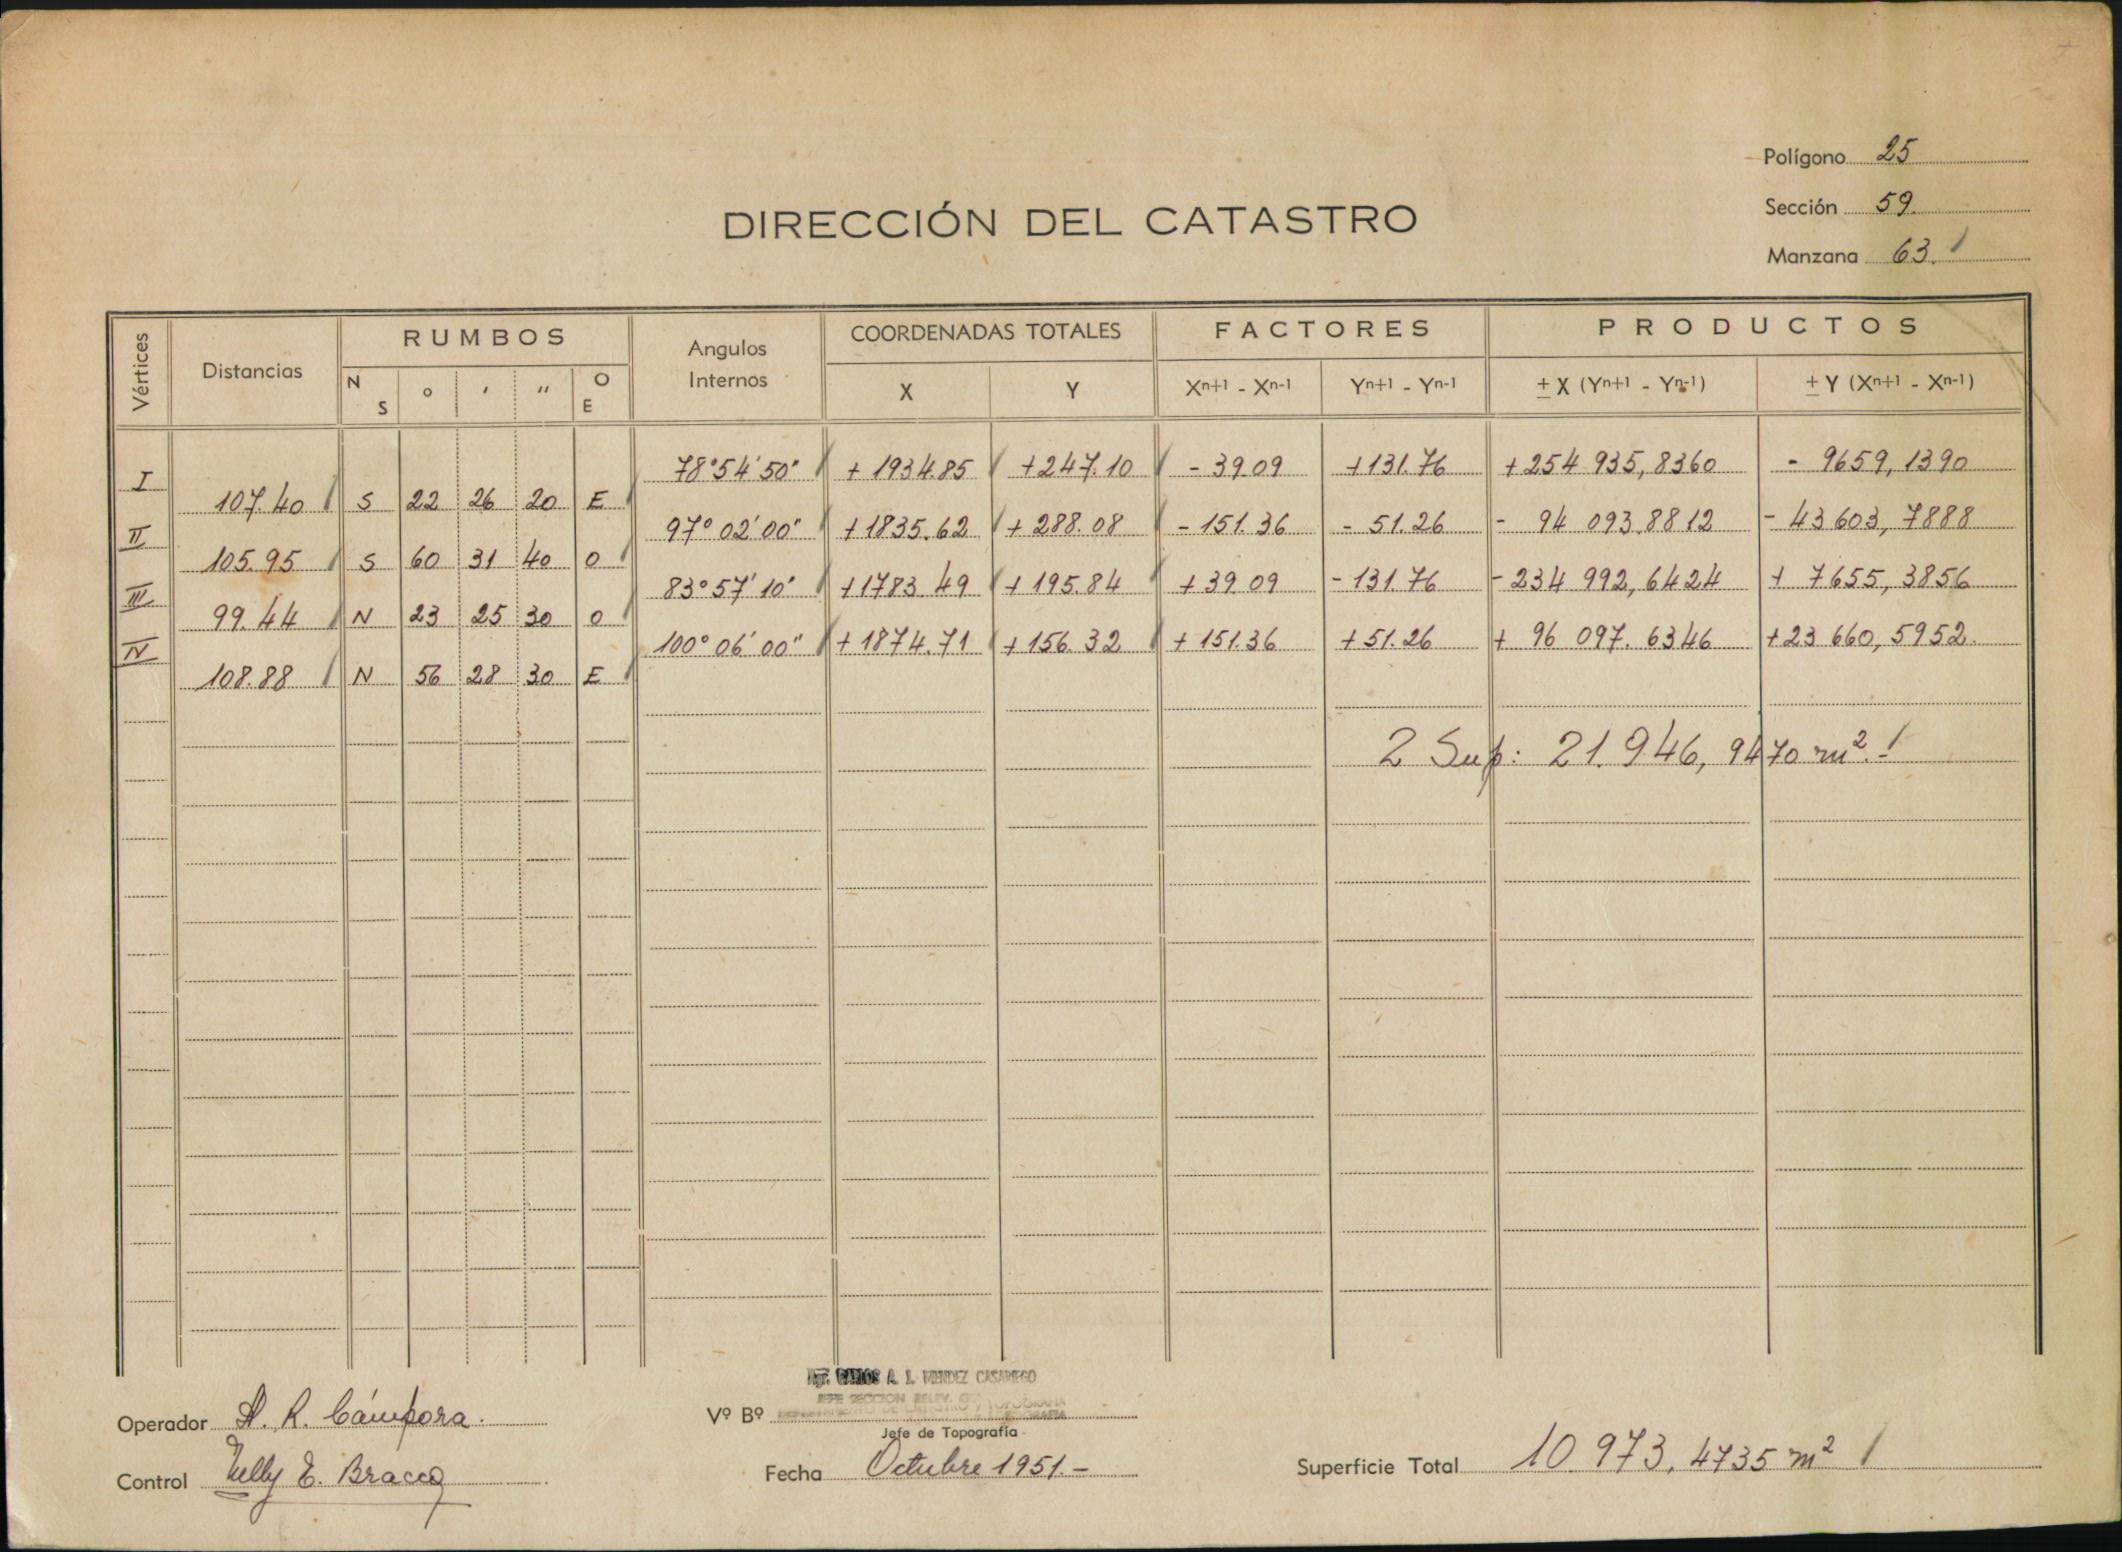 Polígono 25
Sección 59.
Manzana 63.
DIRECCIÓN DEL CATASTRO
Vértices Distancias RUMBOS Angulos Internos COORDENADAS TOTALES FACTORES PRODUCTOS
N S ° ' '' O E X Y Xn+1 - Xn-1 Yn+1 - Yn-1 ± X (Yn+1 - Yn-1) ± Y (Xn+1 - Xn-1)
I 78°54'50" + 1934.85 +247.10 - 39.09 +131.76 +254 935,8360 - 9659,1390
107.40 S 22 26 20 E
II 97°02'00" +1835.62 + 288.08 - 151.36 - 51.26 - 94 093.8812 - 43 603,7888
105.95 S 60 31 40 O
III 83°57'10" +1783.49 + 195.84 + 39.09 - 131.76 - 234 992,6424 + 7655,3856
99.44 N 23 25 30 O
IV 100°06'00" + 1874.71 + 156.32 + 151.36 + 51.26 + 96 097.6346 +23 660,5952.
108.88 N 56 28 30 E
2 Sup: 21.946,9470 m².-
Agr. CARLOS A. J. MENDEZ CASARIEGO
JEFE SECCION
Operador A. R. Cámpora.
Vº Bº
Jefe de Topografía
Control Nelly E. Bracco
Fecha Octubre 1951.-
Superficie Total 10.973,4735 m²